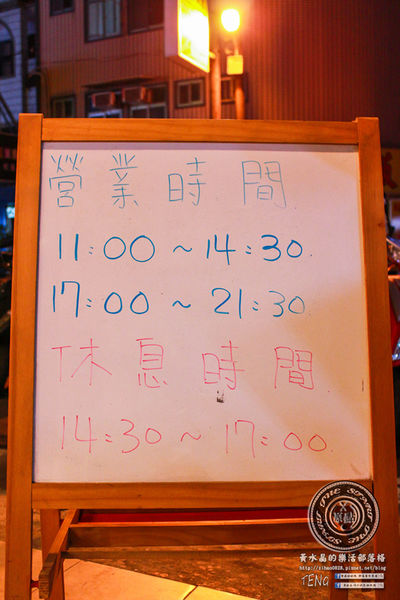 營業時間
11:00~14:30
17:00~21:30
休息時間
14:30~17:00
黃水晶的樂活部落格
TENG